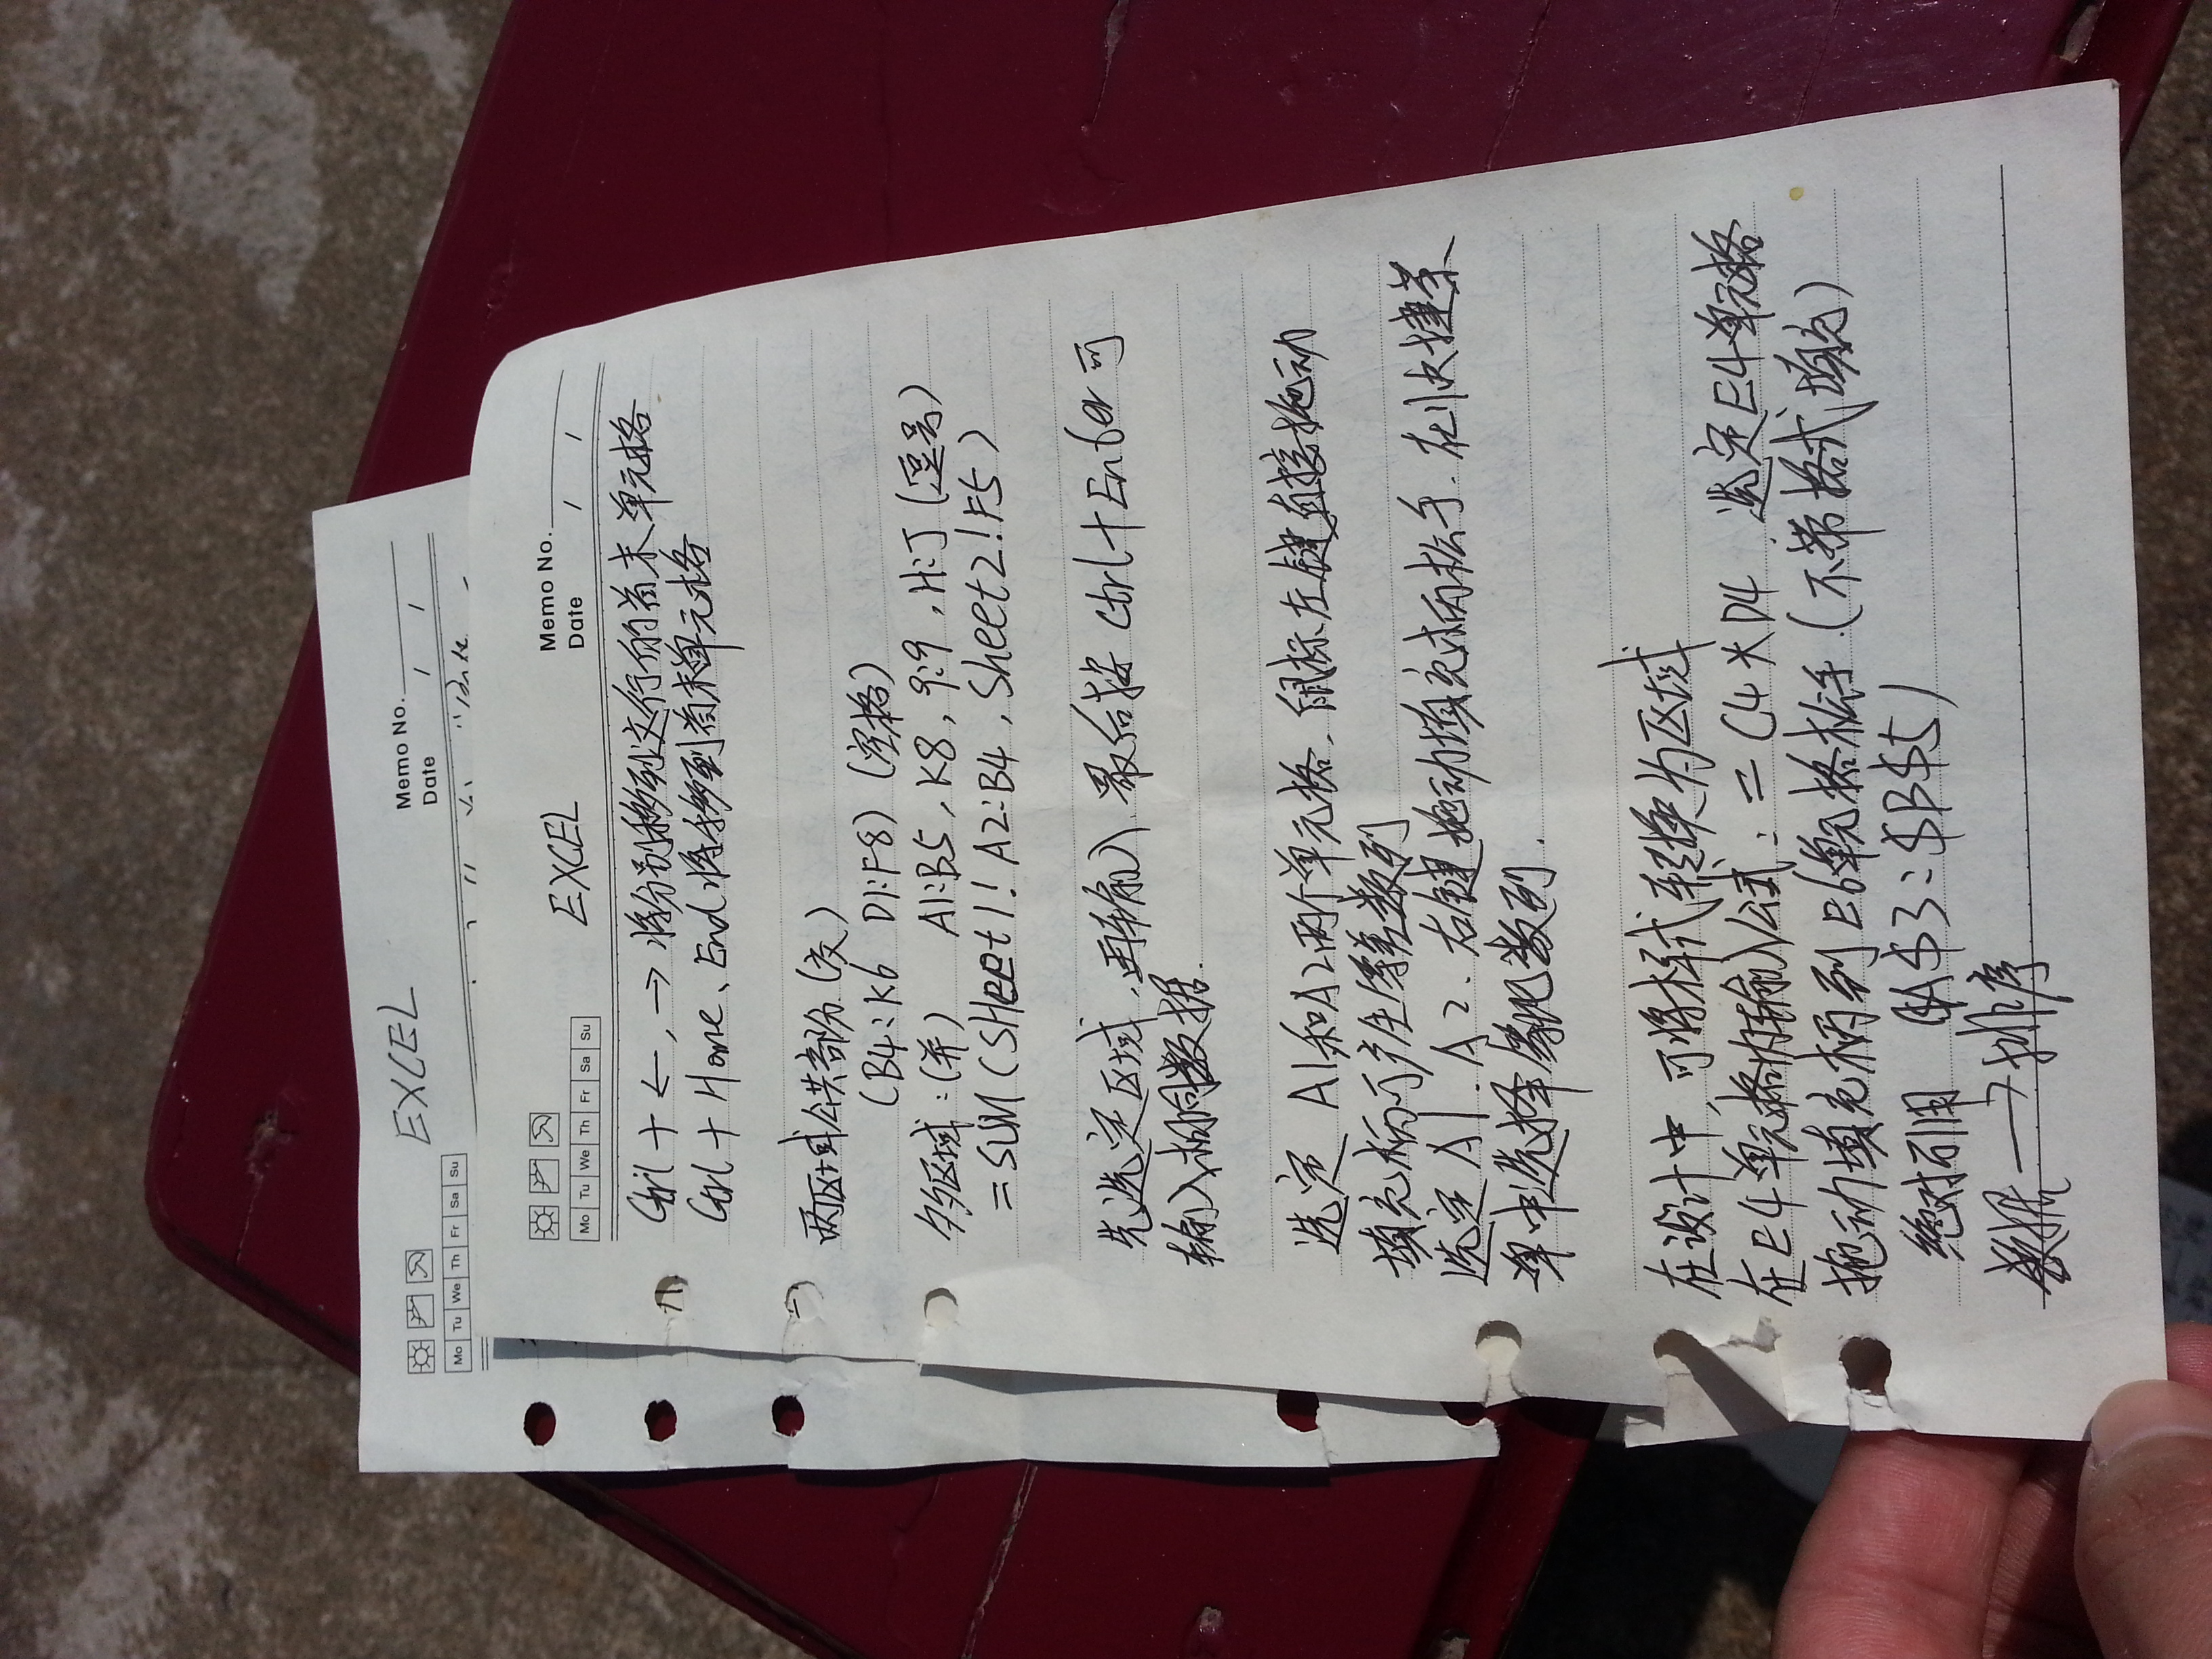 EXCEL
Memo No.
Date / /
Mo Tu We Th Fr Sa Su
EXCEL
Memo No.
Date / /
Mo Tu We Th Fr Sa Su
Ctrl + ←, → 将分别移到文行的首末单元格
Ctrl + Home、End 将移到首末单元格
两区域公共部分 (交)
(B4:K6 D1:F8) (空格)
多区域:(并) A1:B5, K8, 9:9, H:J (逗号)
=SUM(SHeet1! A2:B4, Sheet2!F5)
先选定区域,再输入,最后按 Ctrl+Enter 可
输入相同数据.
选定 A1和A2两个单元格.鼠标左键直接拖动
填充柄可产生等差数列
选定 A1、A2、右键拖动填充柄松手.在快捷菜
单中选择等比数列.
在设计中,可将样式转换为区域
在E4单元格内输入公式:= C4*D4,选定E4单元格
拖动填充柄到E6单元格松手.(不带格式填充)
绝对引用 ($A$3:$B$5)
数据→排序